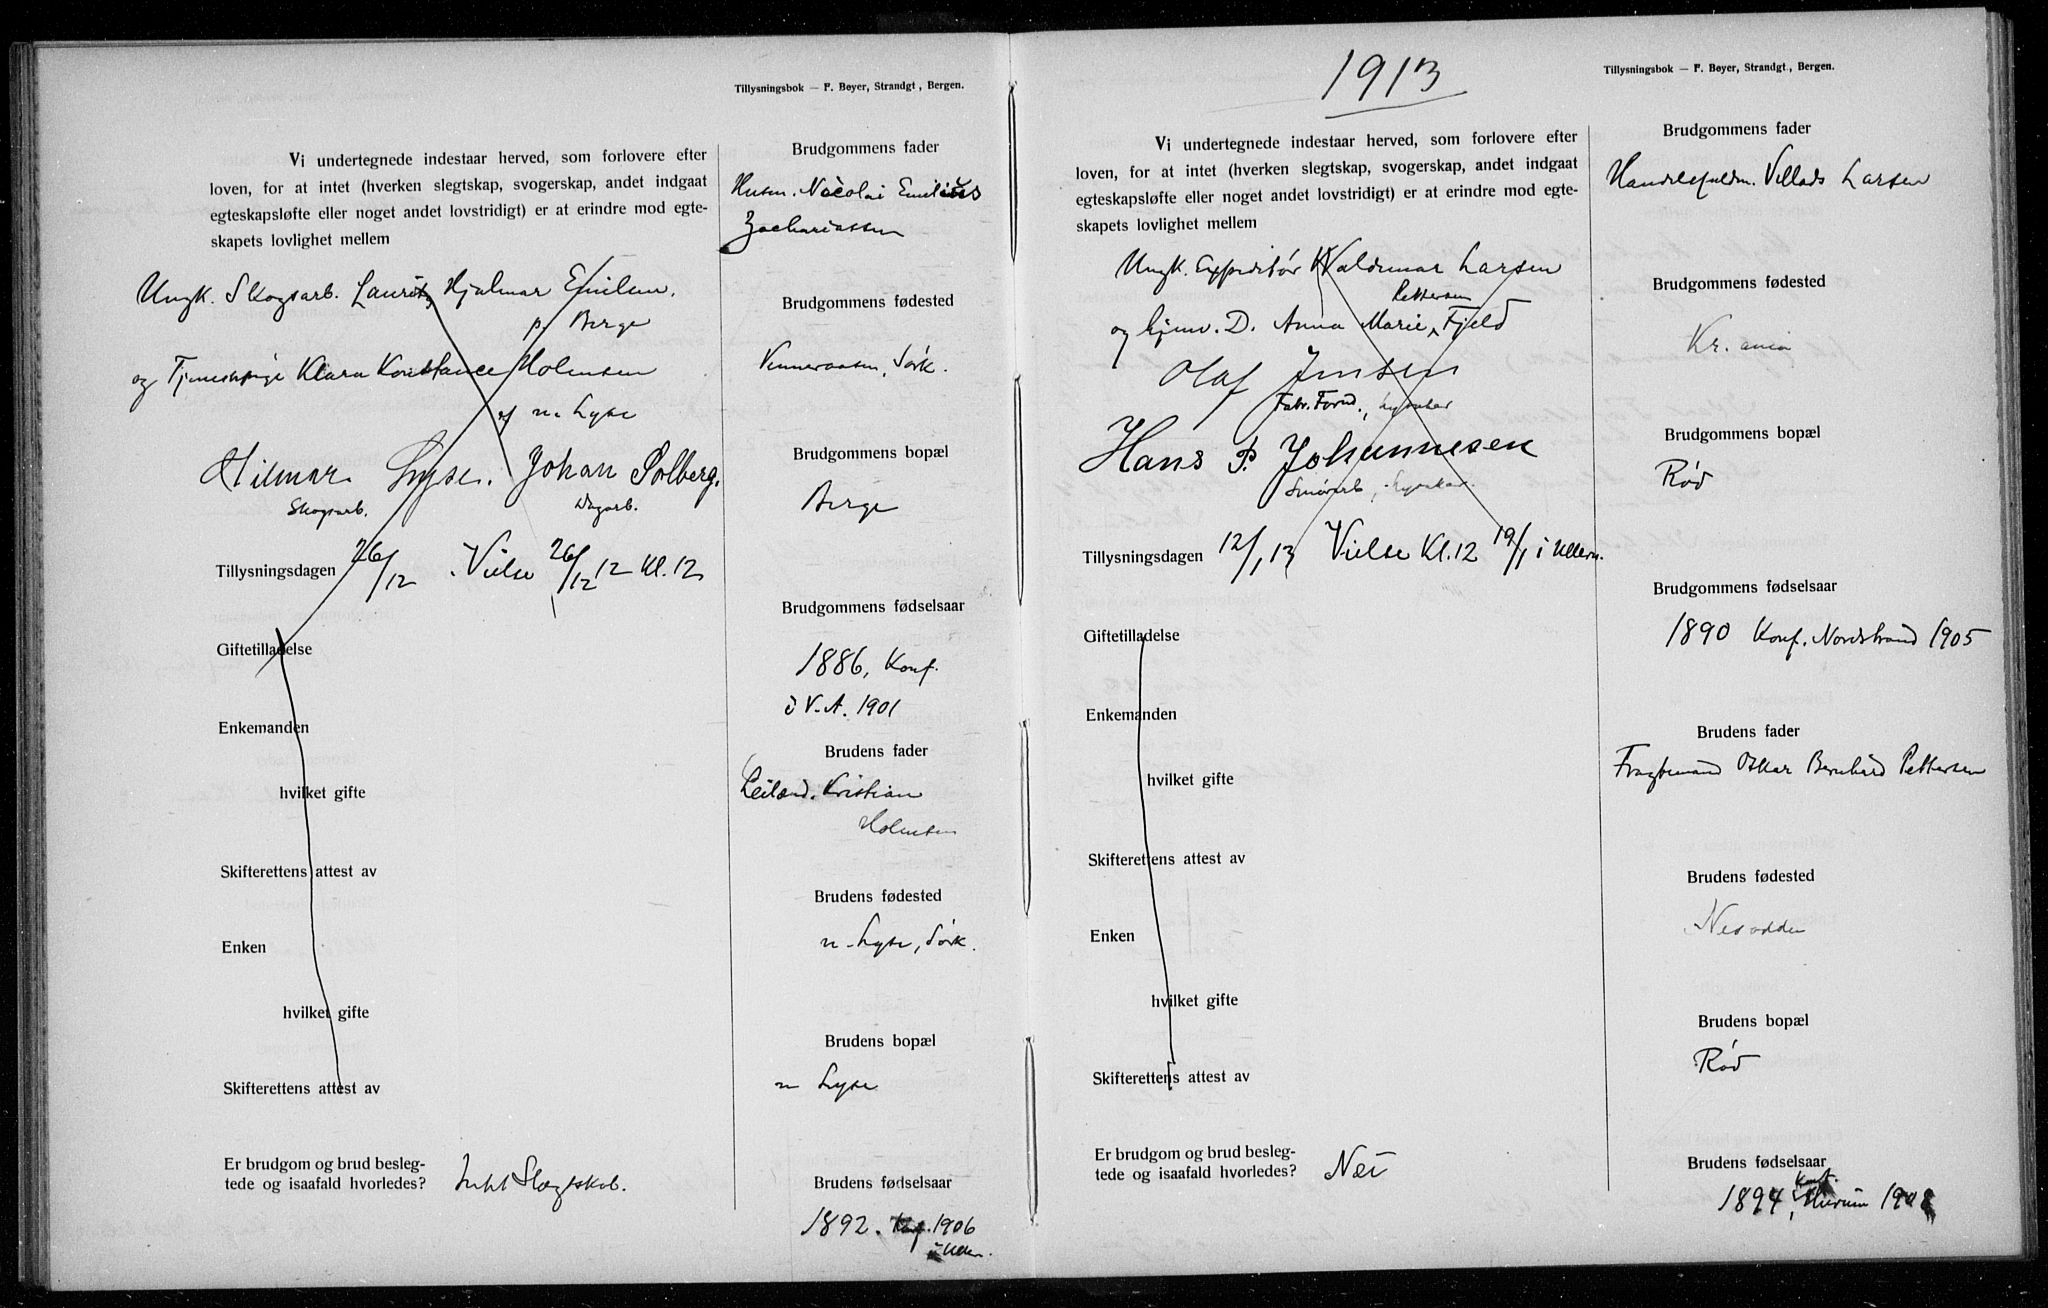 Tillysningsbok — F. Beyer, Strandgt, Bergen.
Vi undertegnede indestaar herved, som forlovere efter
loven, for at intet (hverken slegtskap, svogerskap, andet indgaat
egteskapsløfte eller noget andet lovstridigt) er at erindre mod egte-
skapets lovlighet mellem
Ungk. Skogsarb. Lauritz Hjalmar Emilsen.
p. Berge
og Tjenestepige Klara Konstance Holmsen
af n. Lyse
Hilmar Lyse. Johan Solberg.
Skogsarb. Dagarb.
Tillysningsdagen 26/12 . Vielse 26/12 12 Kl. 12
Giftetilladelse
Enkemanden
hvilket gifte
Skifterettens attest av
Enken
hvilket gifte
Skifterettens attest av
Er brudgom og brud besleg-
tede og isaafald hvorledes? Intet Slægtskab.
Brudgommens fader
Husm. Nicolai Emilius
Zachariassen
Brudgommens fødested
Vinneraasen, Sørk.
Brudgommens bopæl
Berge
Brudgommens fødselsaar
1886, Konf.
i V.A. 1901
Brudens fader
Leilænd. Kristian
Holmsen
Brudens fødested
n. Lyse, Sørk.
Brudens bopæl
n Lyse
Brudens fødselsaar
1892. Konf. 1906
i Uller.
1913
Tillysningsbok — F. Beyer, Strandgt., Bergen.
Vi undertegnede indestaar herved, som forlovere efter
loven, for at intet (hverken slegtskap, svogerskap, andet indgaat
egteskapsløfte eller noget andet lovstridigt) er at erindre mod egte-
skapets lovlighet mellem
Ungk. Expeditør Waldemar Larsen
Pettersen
og hjem. D. Anna Marie Fjeld
Olaf Jensen
Fabr. Form.,
Hans P. Johannesen
Smørarb.,
Tillysningsdagen 12/1 13 Vielse Kl. 12 19/1 i Ullern.
Giftetilladelse
Enkemanden
hvilket gifte
Skifterettens attest av
Enken
hvilket gifte
Skifterettens attest av
Er brudgom og brud besleg-
tede og isaafald hvorledes? Nei
Brudgommens fader
Handelsfuldm. Villads Larsen
Brudgommens fødested
Kr. ania
Brudgommens bopæl
Rød
Brudgommens fødselsaar
1890 Konf. Nordstrand 1905
Brudens fader
Fragtemand Oskar Bernhard Pettersen
Brudens fødested
Nesodden
Brudens bopæl
Rød
Brudens fødselsaar
Konf.
1894, i Hurum 1908